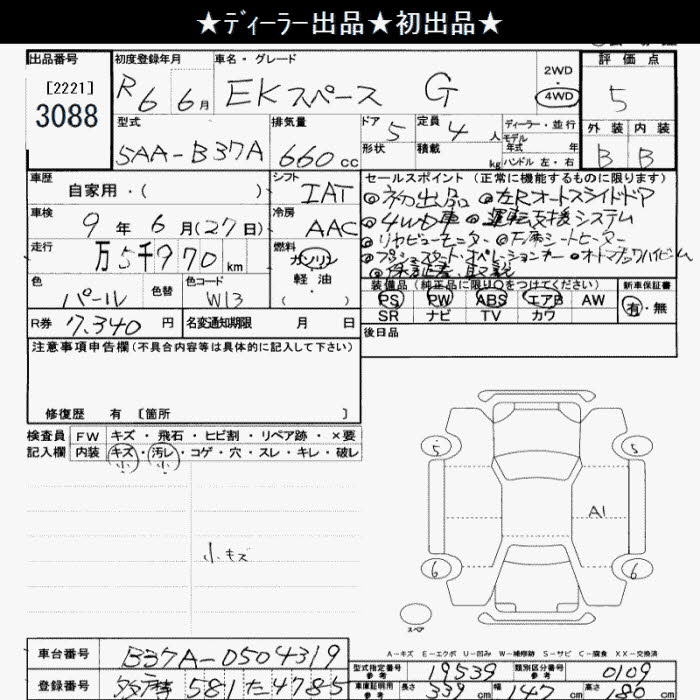 ★ディーラー出品★初出品★
出品番号
[2221]
3088
初度登録年月
R6 6月
車名・グレード
EKスペース G
2WD
4WD
評価点
5
型式
5AA-B37A
排気量
660cc
ドア 5
形状
定員 4人
積載 kg
ディーラー・並行
モデル
年式 年
ハンドル 左・右
外装 内装
B B
車歴
自家用・( )
シフト
IAT
車検
9年6月(27日)
冷房
AAC
走行
万5千970km
燃料
ガソリン
・
軽油
( )
色
パール
色替
色コード
W13
R券 7,340円
名変通知期限 月 日
セールスポイント (正常に機能するものに限ります)
◎初出品 ◎左Rオートスライドドア
◎4WD車 ◎運転支援システム
◎リヤビューモニター ◎左席シートヒーター
◎プッシュスタート・オペレーションキー ◎オートマチックハイビーム
◎保証書、取説
装備品(純正品に限り○をつけてください)
PS PW ABS エアB AW
SR ナビ TV カワ
新車保証書
有・無
後日品
注意事項申告欄(不具合内容等は具体的に記入して下さい)
修復歴 有 〔箇所 〕
検査員
記入欄
FW キズ・飛石・ヒビ割・リペア跡・×要
内装 キズ・汚レ・コゲ・穴・スレ・キレ・破レ
小 小
小キズ
5 5
A1
6 6
スペア
A−キズ E−エクボ U−凹み W−補修跡 S−サビ C−腐食 XX−交換済
車台番号 B37A-0504319
登録番号 581 た 478-5
型式指定番号 参考 19539 類別区分番号 参考 0109
車庫証明用 参考 長さ 339cm 幅 147cm 高さ cm